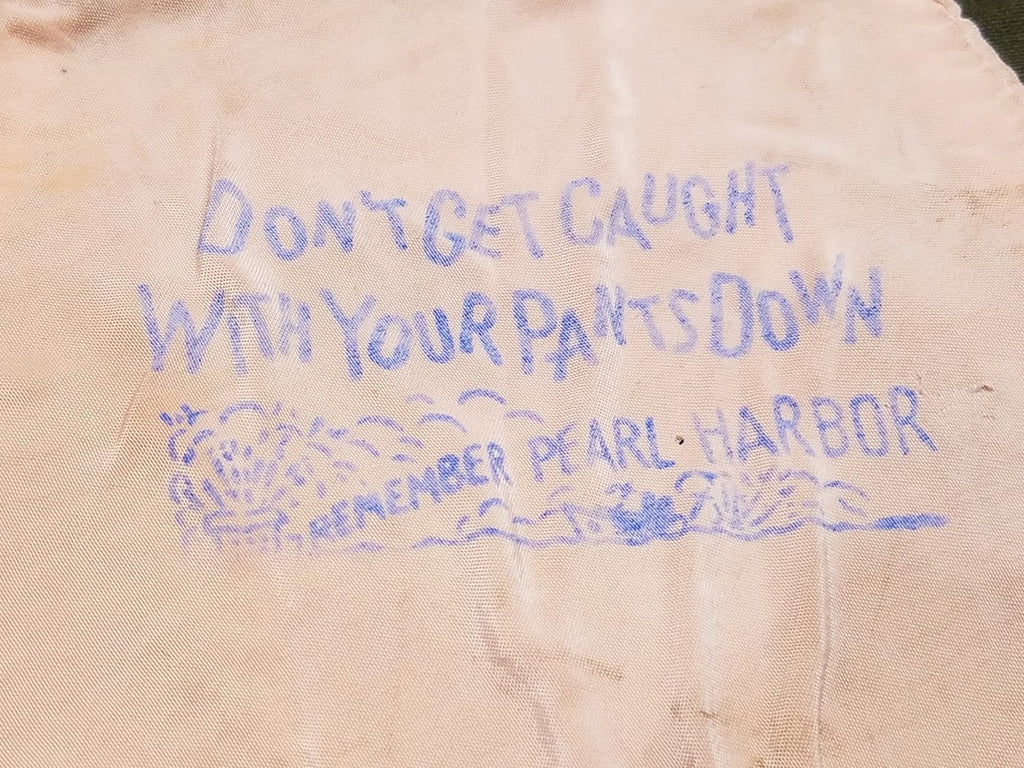 DON'T GET CAUGHT
WITH YOUR PANTS DOWN
REMEMBER PEARL HARBOR